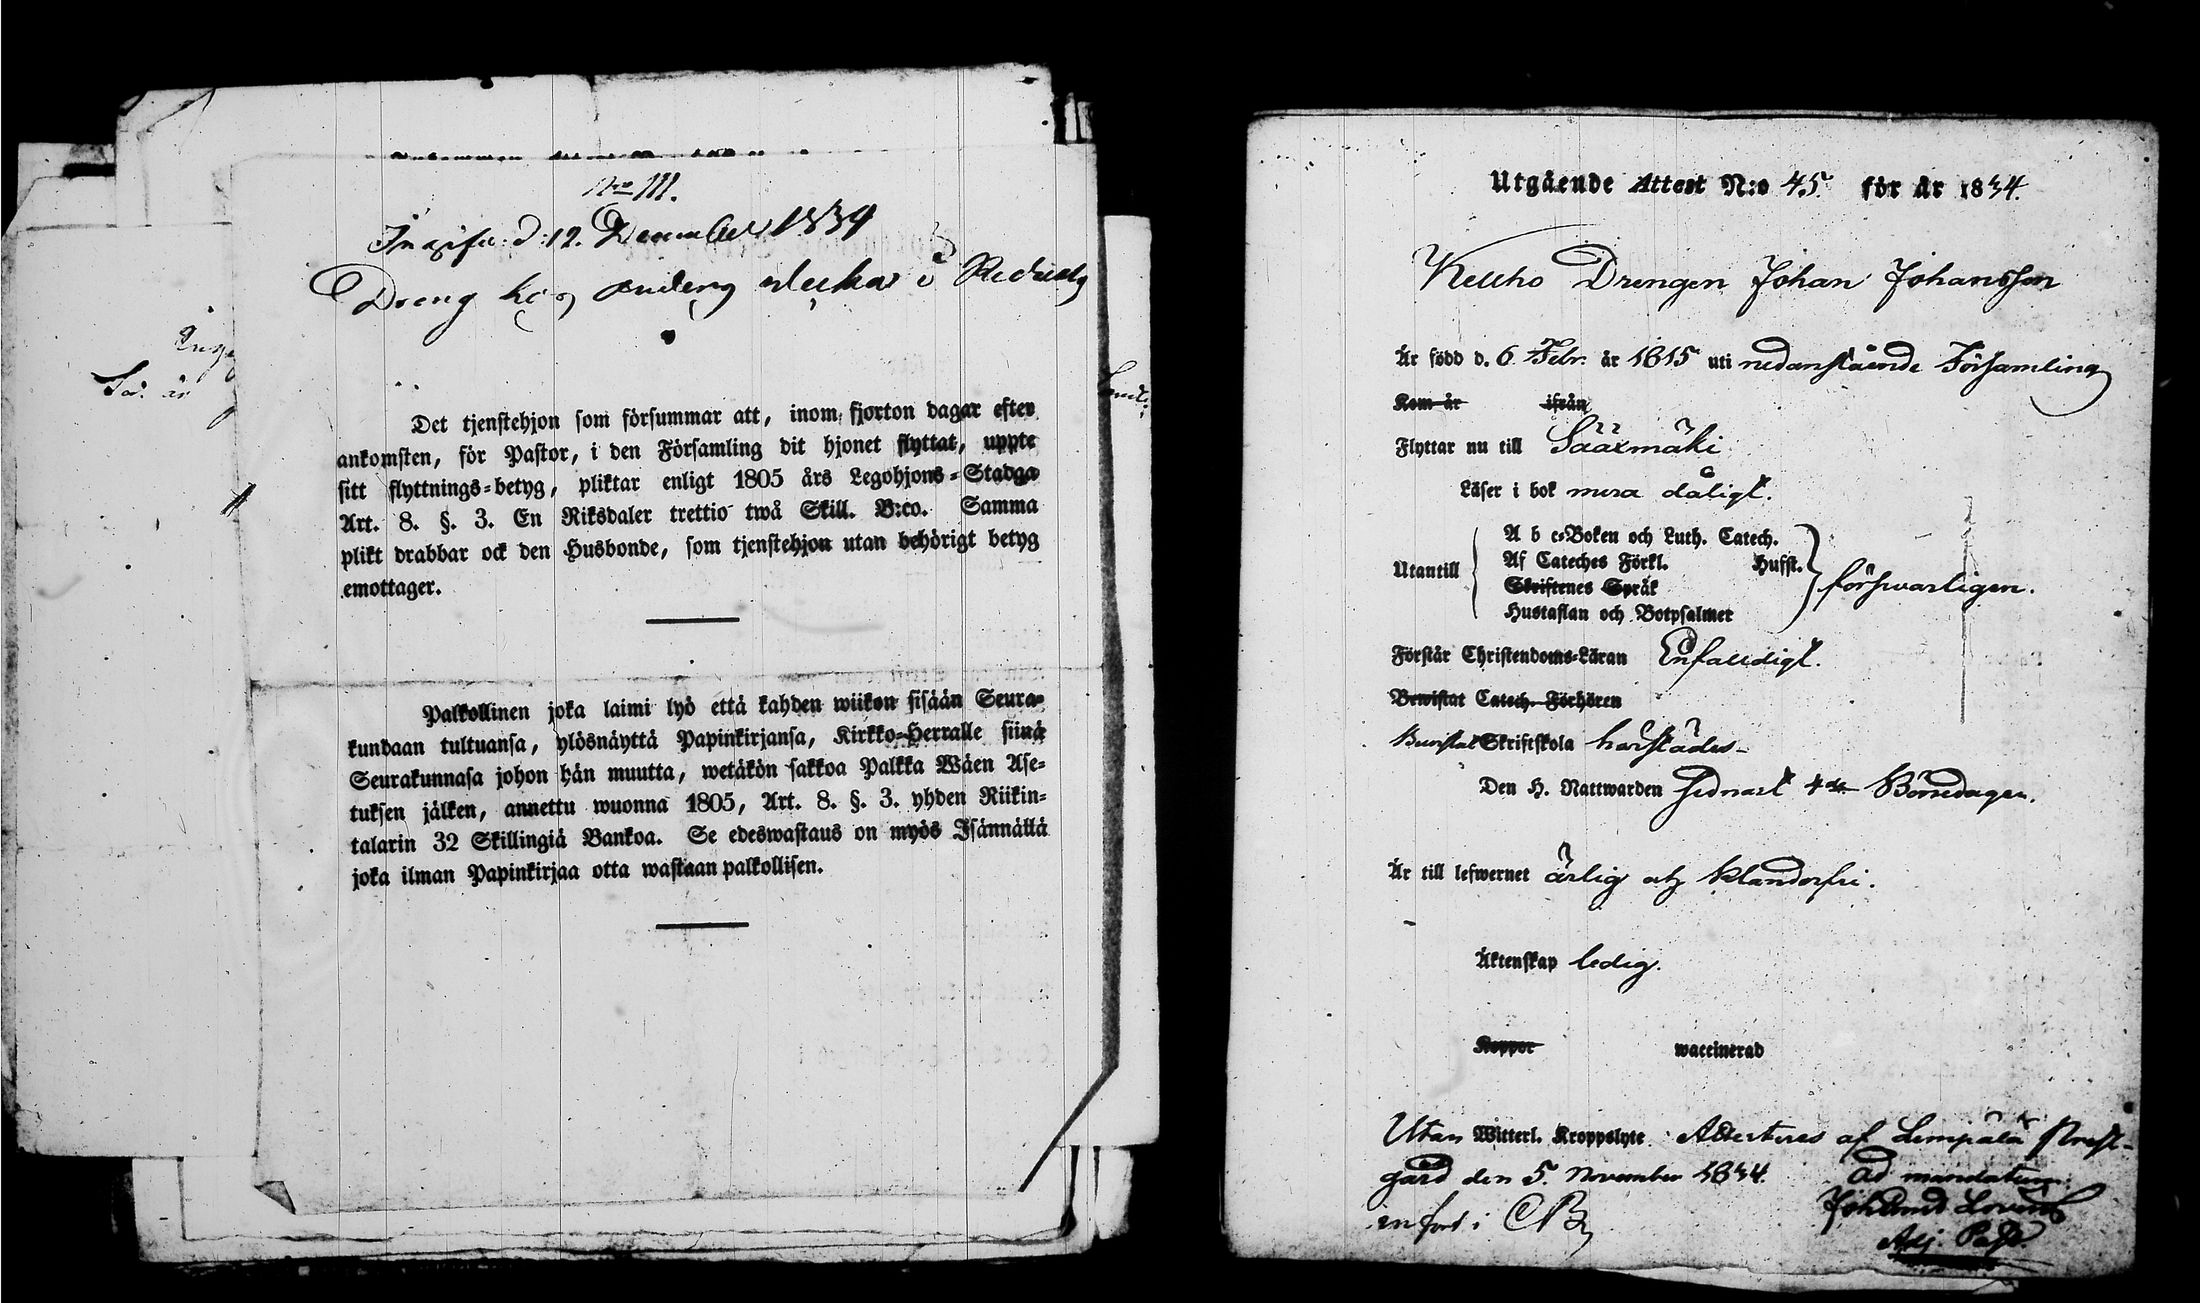 No 111.
d. 12. December 1834
Dreng hos i
Det tjenstehjon som försummar att, inom fjorton dagar efter
ankomsten, för Pastor, i den Församling dit hjonet flyttat, uppte
sitt flyttnings-betyg, pliktar enligt 1805 års Legohjons-Stadga
Art. 8. §. 3. En Riksdaler trettio twå Skill. B:co. Samma
plikt drabbar ock den Husbonde, som tjenstehjon utan behörigt betyg
emottager.
Palkollinen joka laimi lyö että kahden wiikon sisään Seura-
kundaan tultuansa, ylösnäyttä Papinkirjansa, Kirkko-Herralle siinä
Seurakunnasa johon hän muutta, wetäkön sakkoa Palkka Wäen Ase-
tuksen jälken, annettu wuonna 1805, Art. 8. §. 3. yhden Riikin-
talarin 32 Skillingiä Bankoa. Se edeswastaus on myös Isännällä
joka ilman Papinkirjaa otta wastaan palkollisen.
Utgående Attest N:o 45. för år 1834.
Drengen Johan Johansson
Är född d. 6 Febr. år 1815 uti nedanstående Församling
Kom år ifrån
Flyttar nu till Sääxmäki
Läser i bok mera dåligt.
A b c-Boken och Luth. Catech.
Af Cateches Förkl. Husst.
Utantill försvarligen.
Skriftenes Språk
Hustaflan och Botpsalmer
Förstår Christendoms-Läran Enfaldigt.
Bewistat Catech. Förhören
Bevistat Skriftskola härstädes
Den H. Nattwarden sednast 4de Bönedagen.
Är till lefwernet ärlig och klanderfri.
Äktenskap ledig.
Koppor waccinerad
Utan Witterl. Kroppslyte. Attesteras af Lempälä Prest-
gård den 5. November 1834. Ad mandatum
införd i CB
Adj. Past.